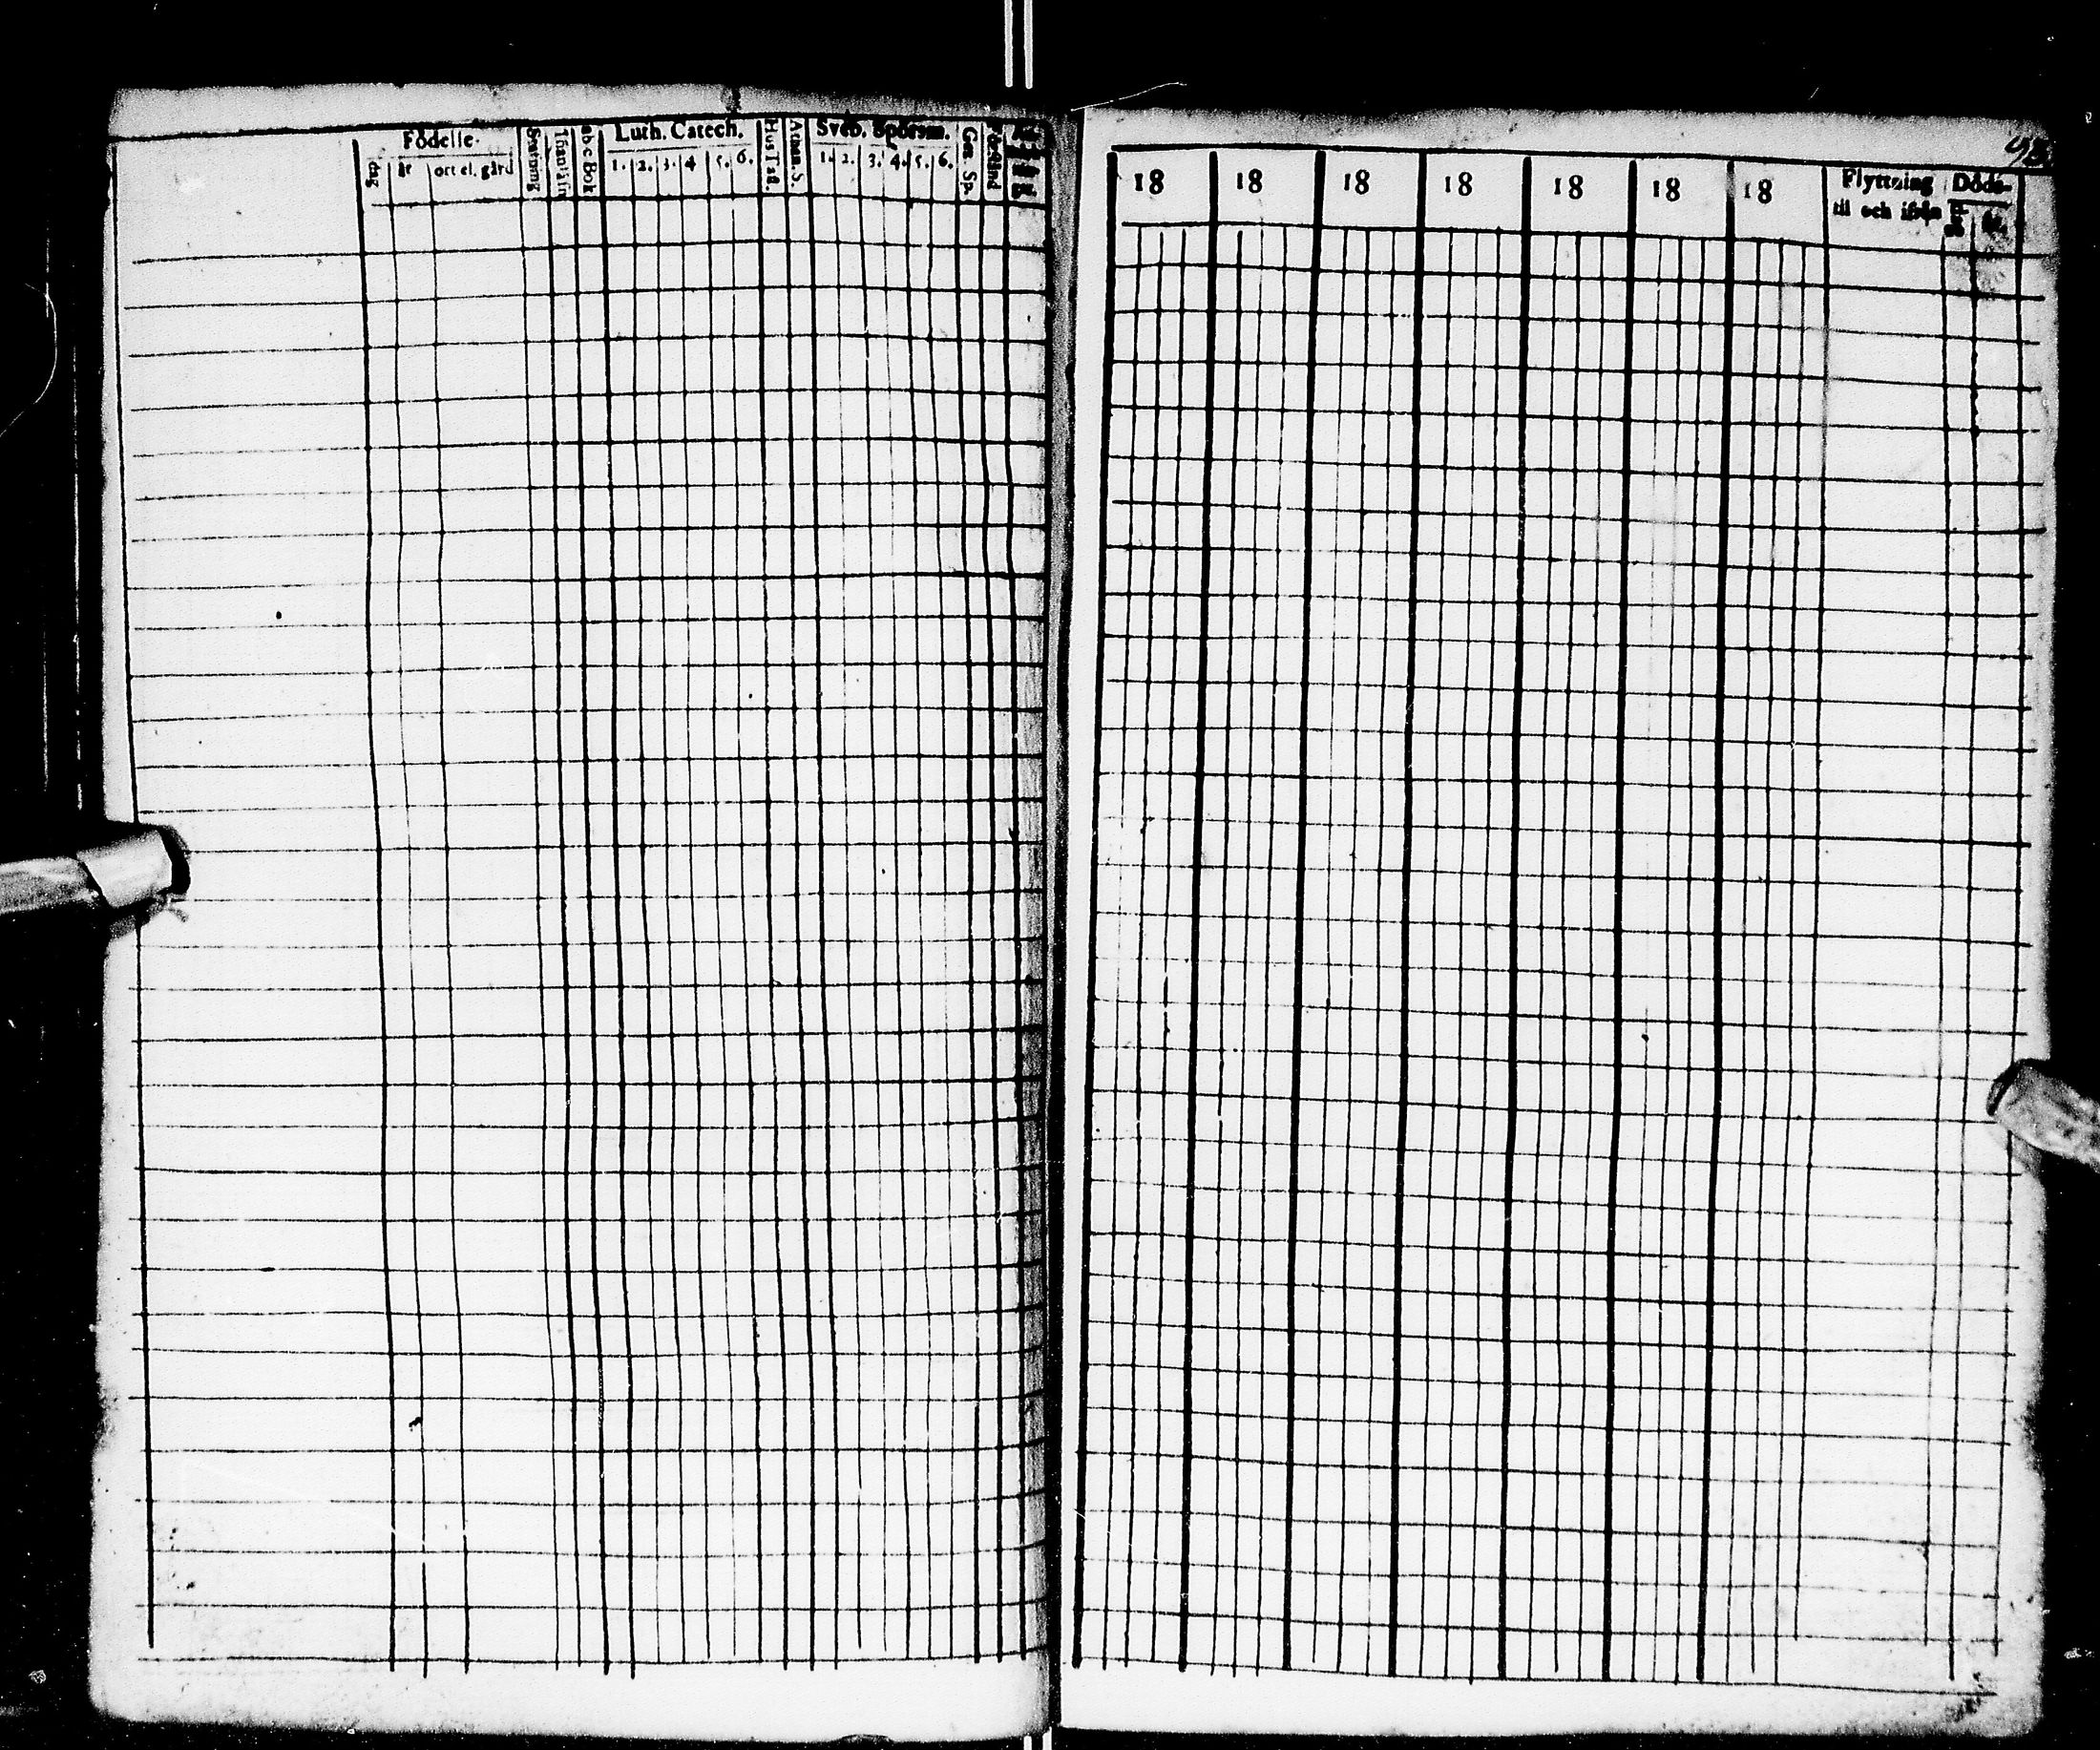 Födelse-
dag år ort el. gård
Stafning
abc Bok
Luth. Catech.
1. 2. 3. 4 5. 6.
Hus Tafl.
Athan. S.
Sveb. Spörsm.
1. 2. 3. 4. 5. 6.
Gen. Sp.
Förstånd
18 18 18 18 18 18 18
Flyttning
til och ifrån
Döds-
dag år.